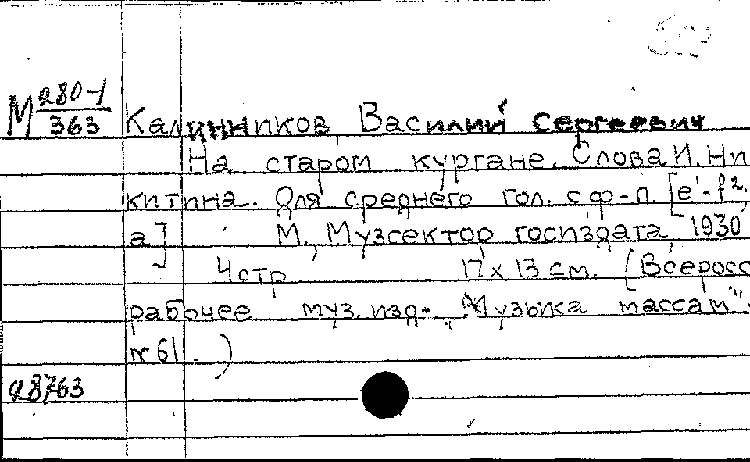 М 280-1
363
Калинников, Василий Сергеевич
На старом кургане. Слова И. Ни
китина. Для среднего гол. с ф-п. [e'-f²,
a] М., Музсектор госиздата, 1930
4 стр 17 x 13 см. (Всеросс
рабочее муз. изд-. "Музыка массам".
№ 61.)
98763